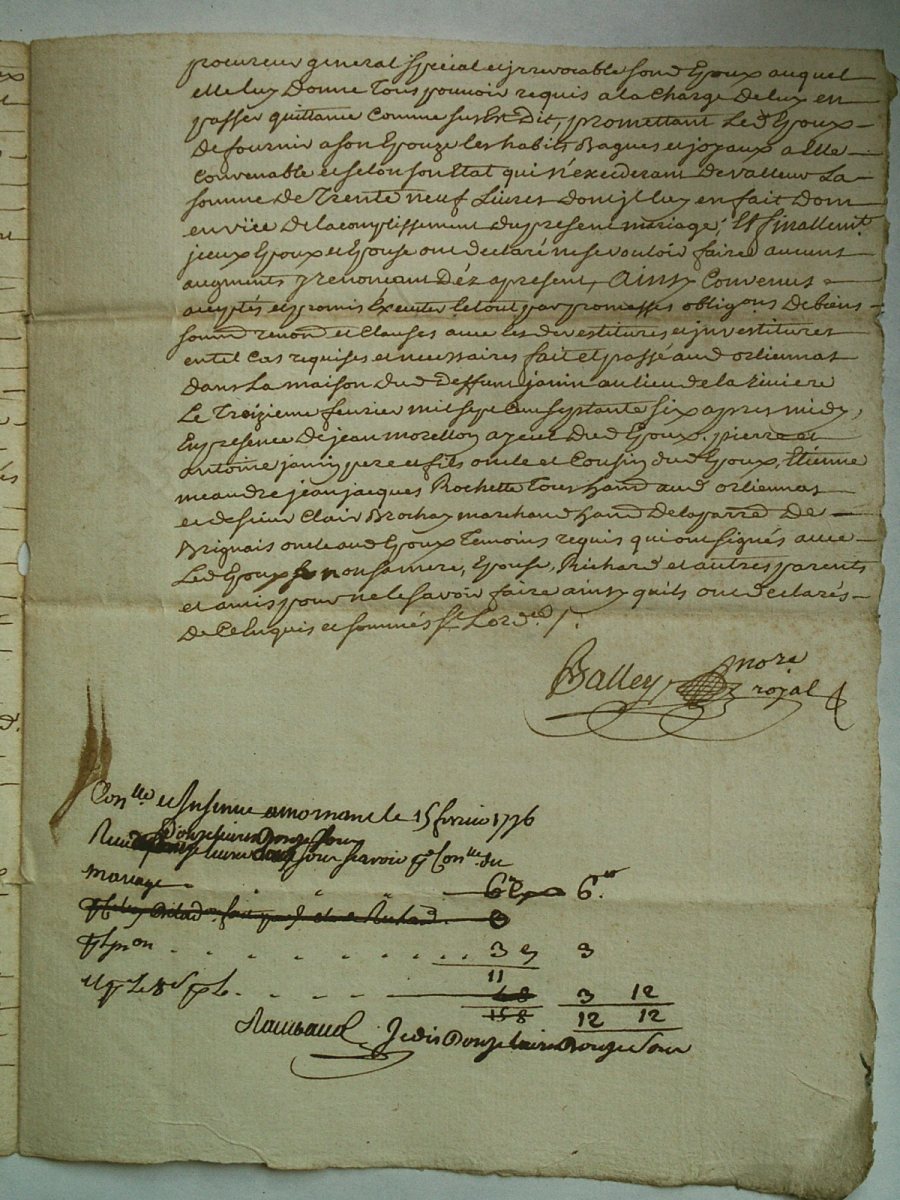 procureur general special et irrevocable sond Epoux auquel
elle luy Donne Tous pouvoir requis a la Charge De luy en
passer quittance Comme sus Est Dit, promettant Led Epoux
De fournir a son Epouze les habits Bagues et joyaux a Elle
Convenable et selon son Etat qui n'excederont de valleur La
somme de Trente neuf Livres Dont jl luy en fait Dom
en vüe De lacomplissement du present mariage; Et finallemt
jceux Epoux et Epouse ont declaré ne se vouloir faire aucuns
augments y renoncant Déz apresent, Ainsy Convenus
acceptés et promis Executer le tout par promesses obligons De biens
soumd renond et Clauses avec les devestitures et jnvestitures
en tel Cas requises et necessaires fait et passé aud orliennas
Dans La maison dud deffunt janin au lieu de la Riviere
Le Treizieme fevrier mil sept Cent septante six apres midy,
En presence De jean morellon ayeul Dud Epoux, pierre et
antoine janin pere et fils oncle et Cousin dud Epoux, Etienne
meandre jean jacques Rochette Tous hand aud orliennas
et de sieur Clair Brochay marchand hand De la parred De
Brignais oncle aud Epoux Temoins requis qui ont signés avec
Led Epoux non sa mere, Epouse, Richard et autres parents
et amis pour ne le savoir faire ainsy quils ont declarés
De Ce Enquis et sommés
Balley nore
royal
Conlle et Insinué a mornant le 15 fevrier 1776
Douze livres Douze sous
livres sous scavoir pr Conlle du
mariage 6 6
3 3
11
3 12
15 8 12 12
Raimbaud Je dis Douze livres Douze sous